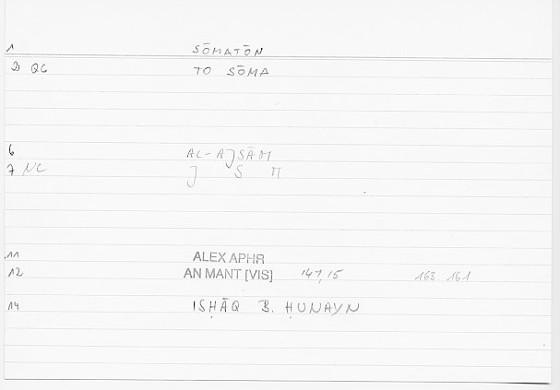 1 SŌMATŌN
2 QG TO SŌMA
6 AL-AJSĀM
7 NC J S M
11 ALEX APHR
12 AN MANT [VIS] 147,15 163.161
14 ISḤĀQ B. ḤUNAYN